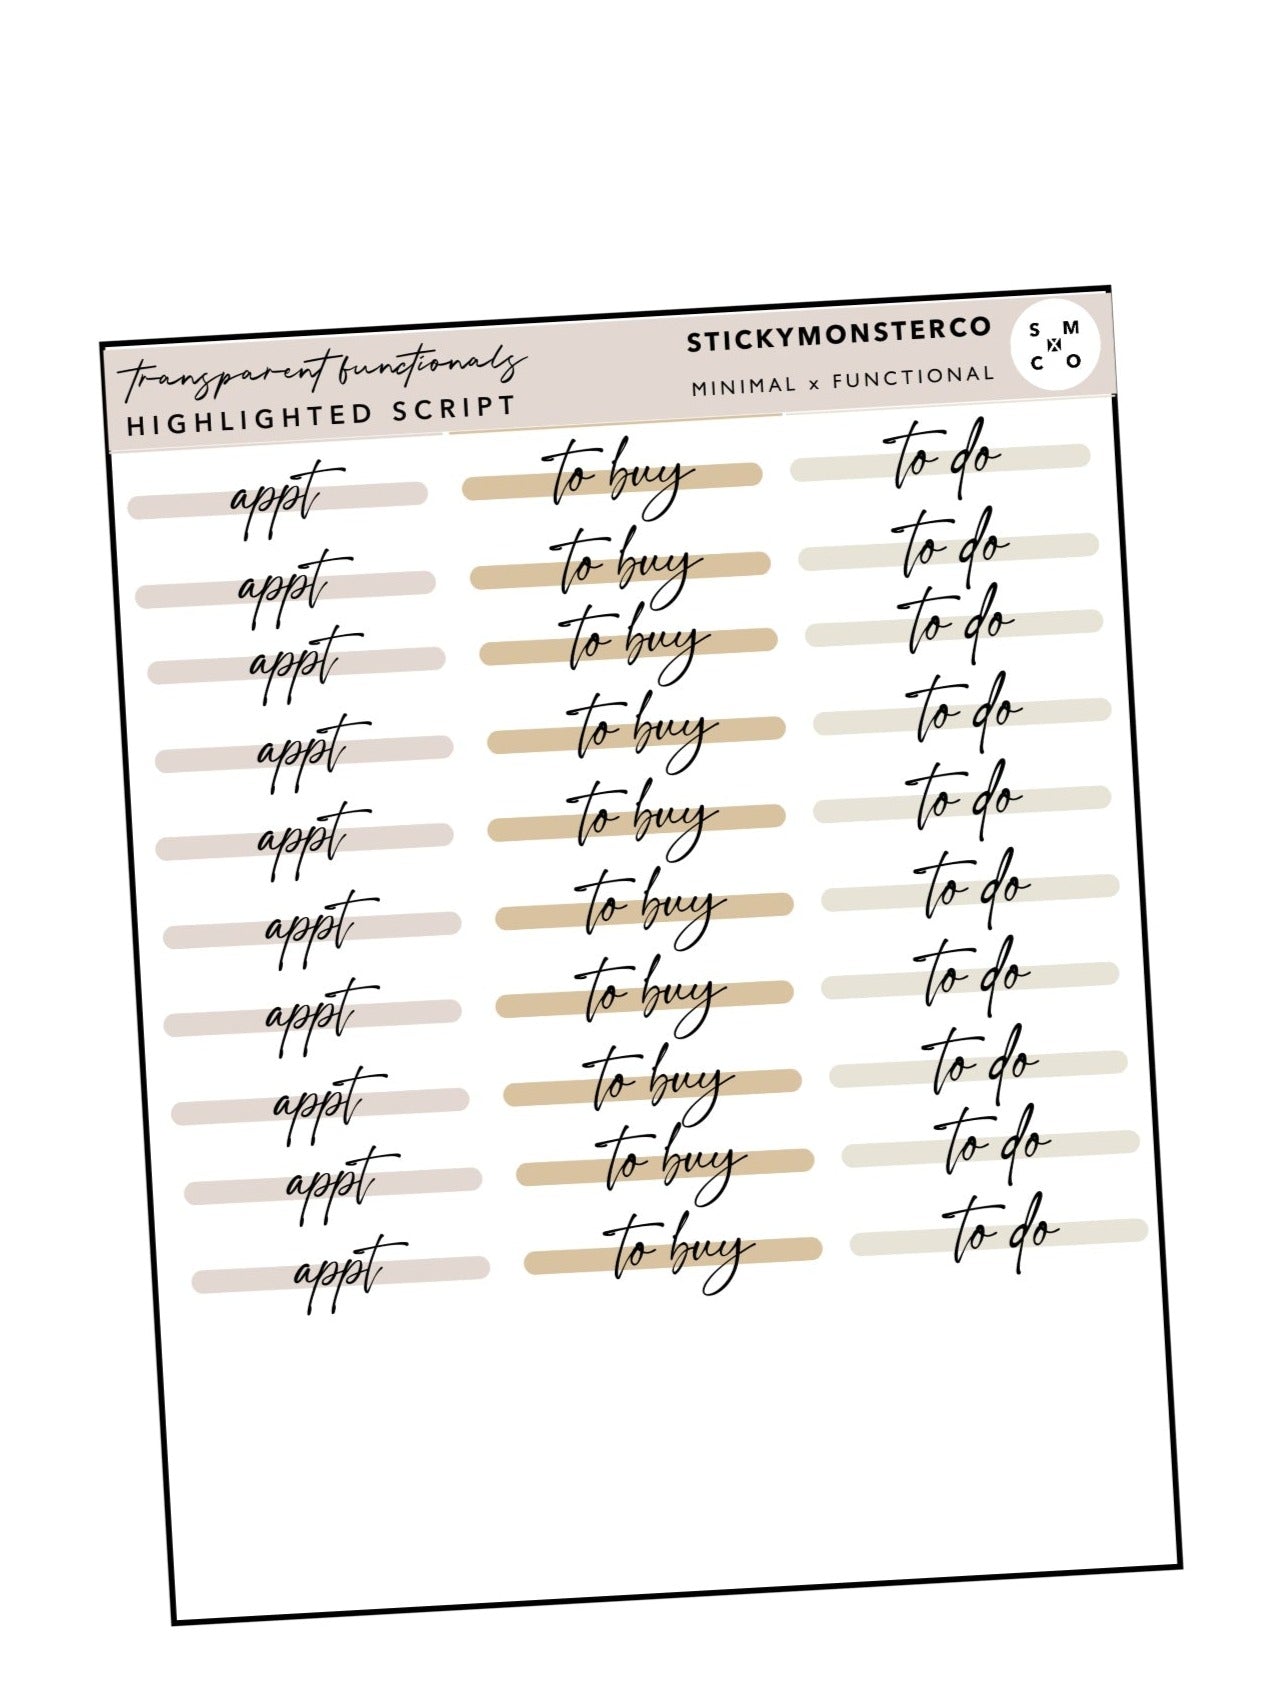 transparent functionals
HIGHLIGHTED SCRIPT
STICKYMONSTERCO
MINIMAL x FUNCTIONAL
S M
C O
appt to buy to do
appt to buy to do
appt to buy to do
appt to buy to do
appt to buy to do
appt to buy to do
appt to buy to do
appt to buy to do
appt to buy to do
appt to buy to do